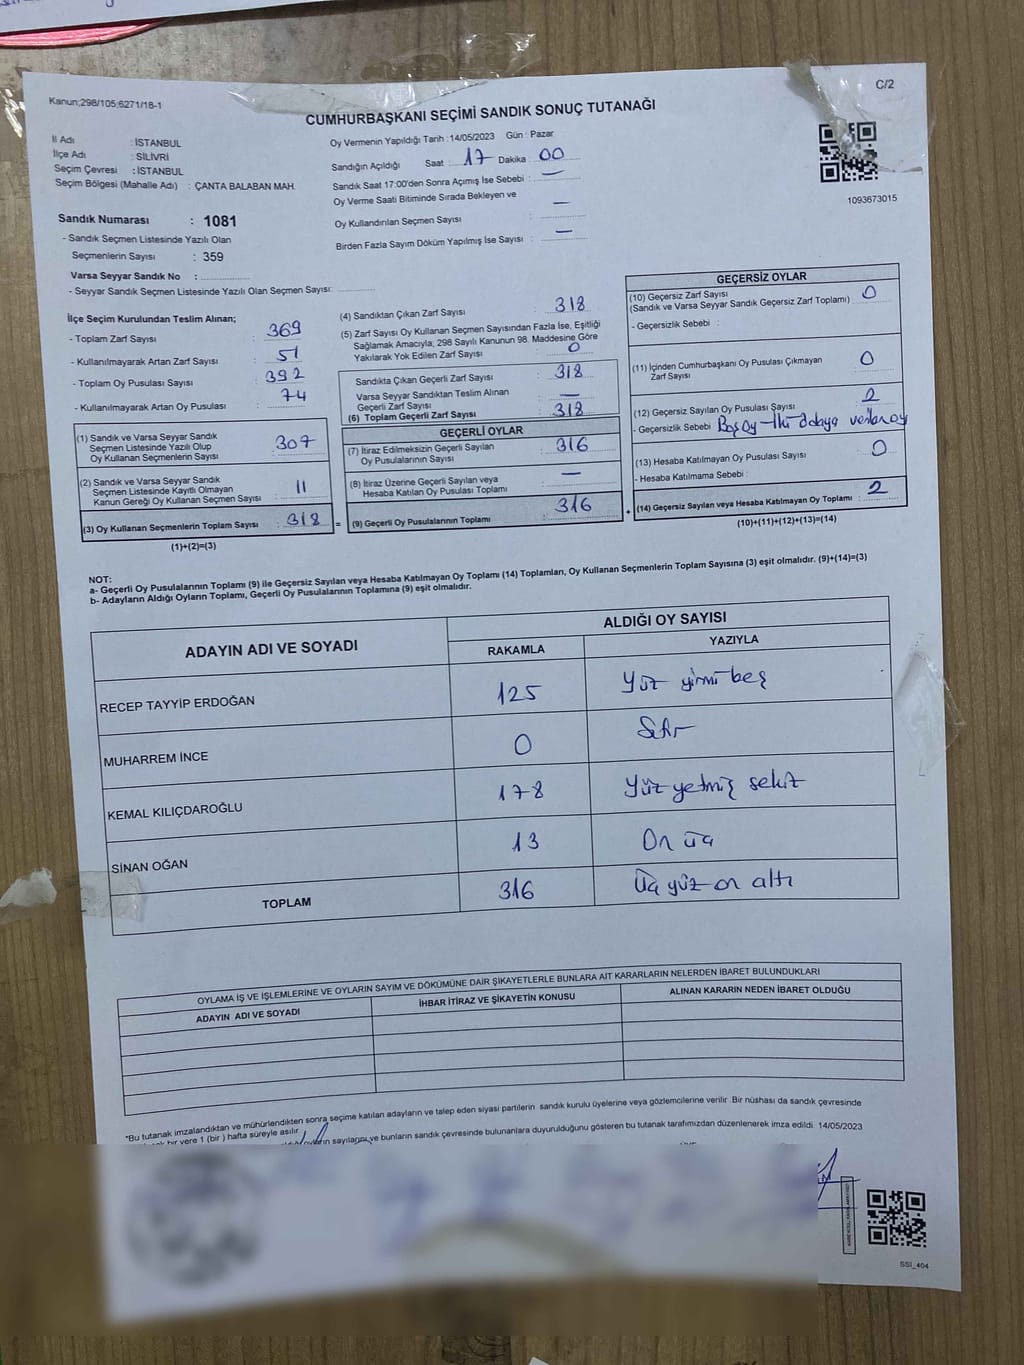 C/2
Kanun;298/105;6271/18-1
CUMHURBAŞKANI SEÇİMİ SANDIK SONUÇ TUTANAĞI
İl Adı : İSTANBUL
İlçe Adı : SİLİVRİ
Seçim Çevresi : İSTANBUL
Seçim Bölgesi (Mahalle Adı) : ÇANTA BALABAN MAH.
Sandık Numarası : 1081
- Sandık Seçmen Listesinde Yazılı Olan
Seçmenlerin Sayısı : 359
Varsa Seyyar Sandık No :
- Seyyar Sandık Seçmen Listesinde Yazılı Olan Seçmen Sayısı:
Oy Vermenin Yapıldığı Tarih : 14/05/2023 Gün : Pazar
Sandığın Açıldığı Saat : 17 Dakika : 00
Sandık Saat 17:00'den Sonra Açımış İse Sebebi : —
Oy Verme Saati Bitiminde Sırada Bekleyen ve
Oy Kullandırılan Seçmen Sayısı : —
Birden Fazla Sayım Döküm Yapılmış İse Sayısı : —
1093673015
İlçe Seçim Kurulundan Teslim Alınan;
- Toplam Zarf Sayısı : 369
- Kullanılmayarak Artan Zarf Sayısı : 51
- Toplam Oy Pusulası Sayısı : 392
- Kullanılmayarak Artan Oy Pusulası : 74
(1) Sandık ve Varsa Seyyar Sandık
Seçmen Listesinde Yazılı Olup
Oy Kullanan Seçmenlerin Sayısı : 307
(2) Sandık ve Varsa Seyyar Sandık
Seçmen Listesinde Kayıtlı Olmayan
Kanun Gereği Oy Kullanan Seçmen Sayısı : 11
(3) Oy Kullanan Seçmenlerin Toplam Sayısı : 318 =
(1)+(2)=(3)
(4) Sandıktan Çıkan Zarf Sayısı : 318
(5) Zarf Sayısı Oy Kullanan Seçmen Sayısından Fazla İse, Eşitliği
Sağlamak Amacıyla; 298 Sayılı Kanunun 98. Maddesine Göre
Yakılarak Yok Edilen Zarf Sayısı : 0
Sandıkta Çıkan Geçerli Zarf Sayısı : 318
Varsa Seyyar Sandıktan Teslim Alınan
Geçerli Zarf Sayısı : —
(6) Toplam Geçerli Zarf Sayısı : 318
GEÇERLİ OYLAR
(7) İtiraz Edilmeksizin Geçerli Sayılan
Oy Pusulalarının Sayısı : 316
(8) İtiraz Üzerine Geçerli Sayılan veya
Hesaba Katılan Oy Pusulası Toplamı : —
(9) Geçerli Oy Pusulalarının Toplamı : 316 +
GEÇERSİZ OYLAR
(10) Geçersiz Zarf Sayısı
(Sandık ve Varsa Seyyar Sandık Geçersiz Zarf Toplamı) : 0
- Geçersizlik Sebebi :
(11) İçinden Cumhurbaşkanı Oy Pusulası Çıkmayan
Zarf Sayısı : 0
(12) Geçersiz Sayılan Oy Pusulası Sayısı : 2
- Geçersizlik Sebebi : Boş oy - İki adaya verilen oy
(13) Hesaba Katılmayan Oy Pusulası Sayısı : 0
- Hesaba Katılmama Sebebi :
(14) Geçersiz Sayılan veya Hesaba Katılmayan Oy Toplamı : 2
(10)+(11)+(12)+(13)=(14)
NOT:
a- Geçerli Oy Pusulalarının Toplamı (9) ile Geçersiz Sayılan veya Hesaba Katılmayan Oy Toplamı (14) Toplamları, Oy Kullanan Seçmenlerin Toplam Sayısına (3) eşit olmalıdır. (9)+(14)=(3)
b- Adayların Aldığı Oyların Toplamı, Geçerli Oy Pusulalarının Toplamına (9) eşit olmalıdır.
ADAYIN ADI VE SOYADI
ALDIĞI OY SAYISI
RAKAMLA YAZIYLA
RECEP TAYYİP ERDOĞAN 125 Yüz yirmi beş
MUHARREM İNCE 0 Sıfır
KEMAL KILIÇDAROĞLU 178 Yüz yetmiş sekiz
SİNAN OĞAN 13 On üç
TOPLAM 316 Üç yüz on altı
OYLAMA İŞ VE İŞLEMLERİNE VE OYLARIN SAYIM VE DÖKÜMÜNE DAİR ŞİKAYETLERLE BUNLARA AİT KARARLARIN NELERDEN İBARET BULUNDUKLARI
ADAYIN ADI VE SOYADI İHBAR İTİRAZ VE ŞİKAYETİN KONUSU ALINAN KARARIN NEDEN İBARET OLDUĞU
*Bu tutanak imzalandıktan ve mühürlendikten sonra seçime katılan adayların ve talep eden siyasi partilerin sandık kurulu üyelerine veya gözlemcilerine verilir. Bir nüshası da sandık çevresinde
bir yere 1 (bir) hafta süreyle asılır.
sayılarını ve bunların sandık çevresinde bulunanlara duyurulduğunu gösteren bu tutanak tarafımızdan düzenlenerek imza edildi. 14/05/2023
SSI_404